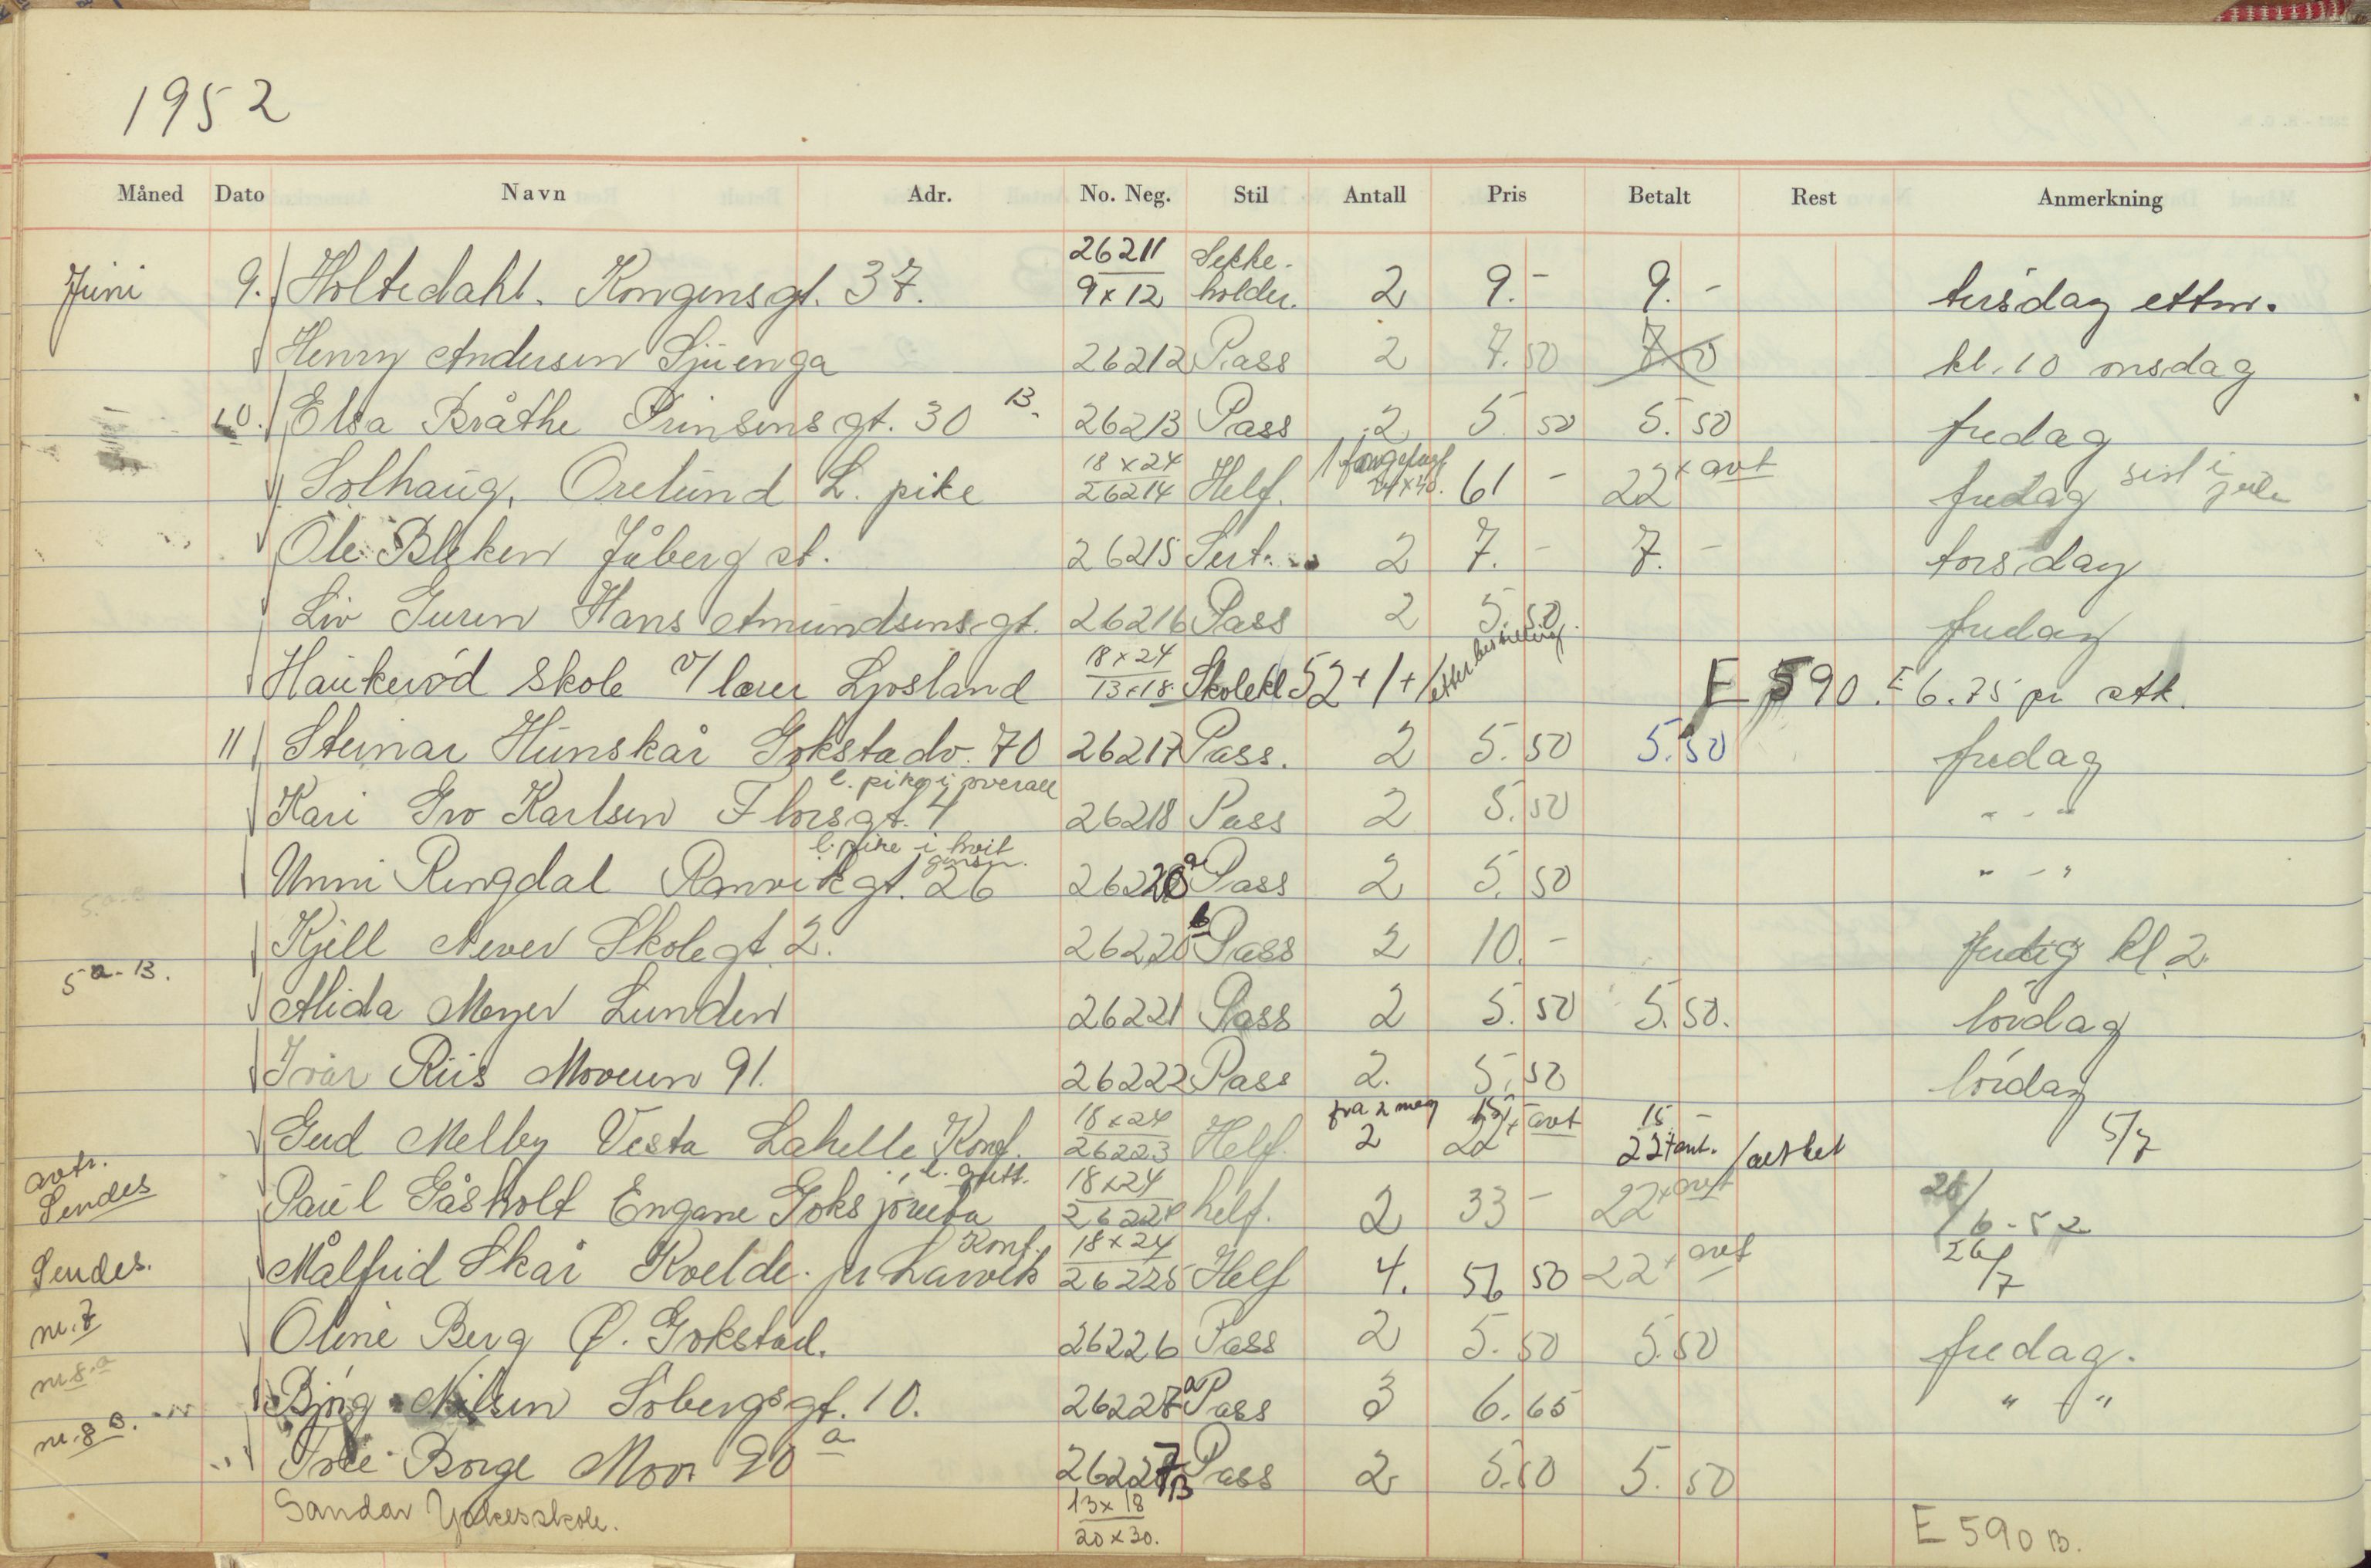 1952
Måned Dato Navn Adr. No. Neg. Stil Antall Pris Betalt Rest Anmerkning
Juni 9. Holtedahl. Kongensgt. 37. 26211 9x12 Sekke-holder. 2 9.- 9.- tirsdag ettm.
Henry Andersen Sjuenga 26212 Pass 2 7.50 7.50 kl. 10 onsdag
10. Elsa Bråthe Prinsensgt. 30 B. 26213 Pass 2 5.50 5.50 fredag
Solhaug, Orelund L. pike 18x24 26214 Helf. 1 24x30. 61 - 22 + avt fredag sist i
Ole Bleken Jåberg st. 26215 Sert. 2 7.- 7.- torsdag
Liv Guren Hans Amundsensgt. 26216 Pass 2 5.50. fredag
Haukerød skole v/ lærer Ljosland 18x24 13x18. Skolekl 52+1+1 etterbestilling E 590. E 6.75 pr stk.
11 Steinar Hunskår Gokstadv. 70 26217 Pass. 2 5.50 5.50 fredag
l. pike i overall
Kari Gro Karlsen Florsgt. 4 26218 Pass 2 5.50 " - "
l. pike i hvit genser.
Unni Ringdal Ranvikgt. 26 26220 a Pass 2 5.50 " - "
Kjell Never Skolegt 2. 26220 b Pass 2 10.- kl 2
5 a - B.
Alida Meyer Lunden 26221 Pass 2 5.50 5.50. lördag
Ivar Riis Moveien 91. 26222 Pass 2. 5.50 lördag
Gud Melby Vesta Lahelle Konf. 18x24 26223 Helf. fra 2 neg 2 15 + avt 22 15 - 22 + avt. 5/7
avtr. Sendes Paul Gåsholt Engane Goksjøruta 18x24 26224 helf. 2 33 - 22 + avt 26/6-52
Sendes. Målfrid Skår Kvelde pr Larvik Konf. 18x24 26225 Helf 4. 56 50 22 + avt 26/7
nr. 7 Oline Berg Ø. Gokstad. 26226 Pass 2 5.50 5.50 fredag.
nr. 8. a Bjørg Nilsen Søbergsgt. 10. 26227 a Pass 3 6.65 " - "
nr. 8 B. Borge Moor 90 a 26227 B Pass 2 5.50 5.50
Sandar Yrkesskole. 13x18 20x30. E 590 B.